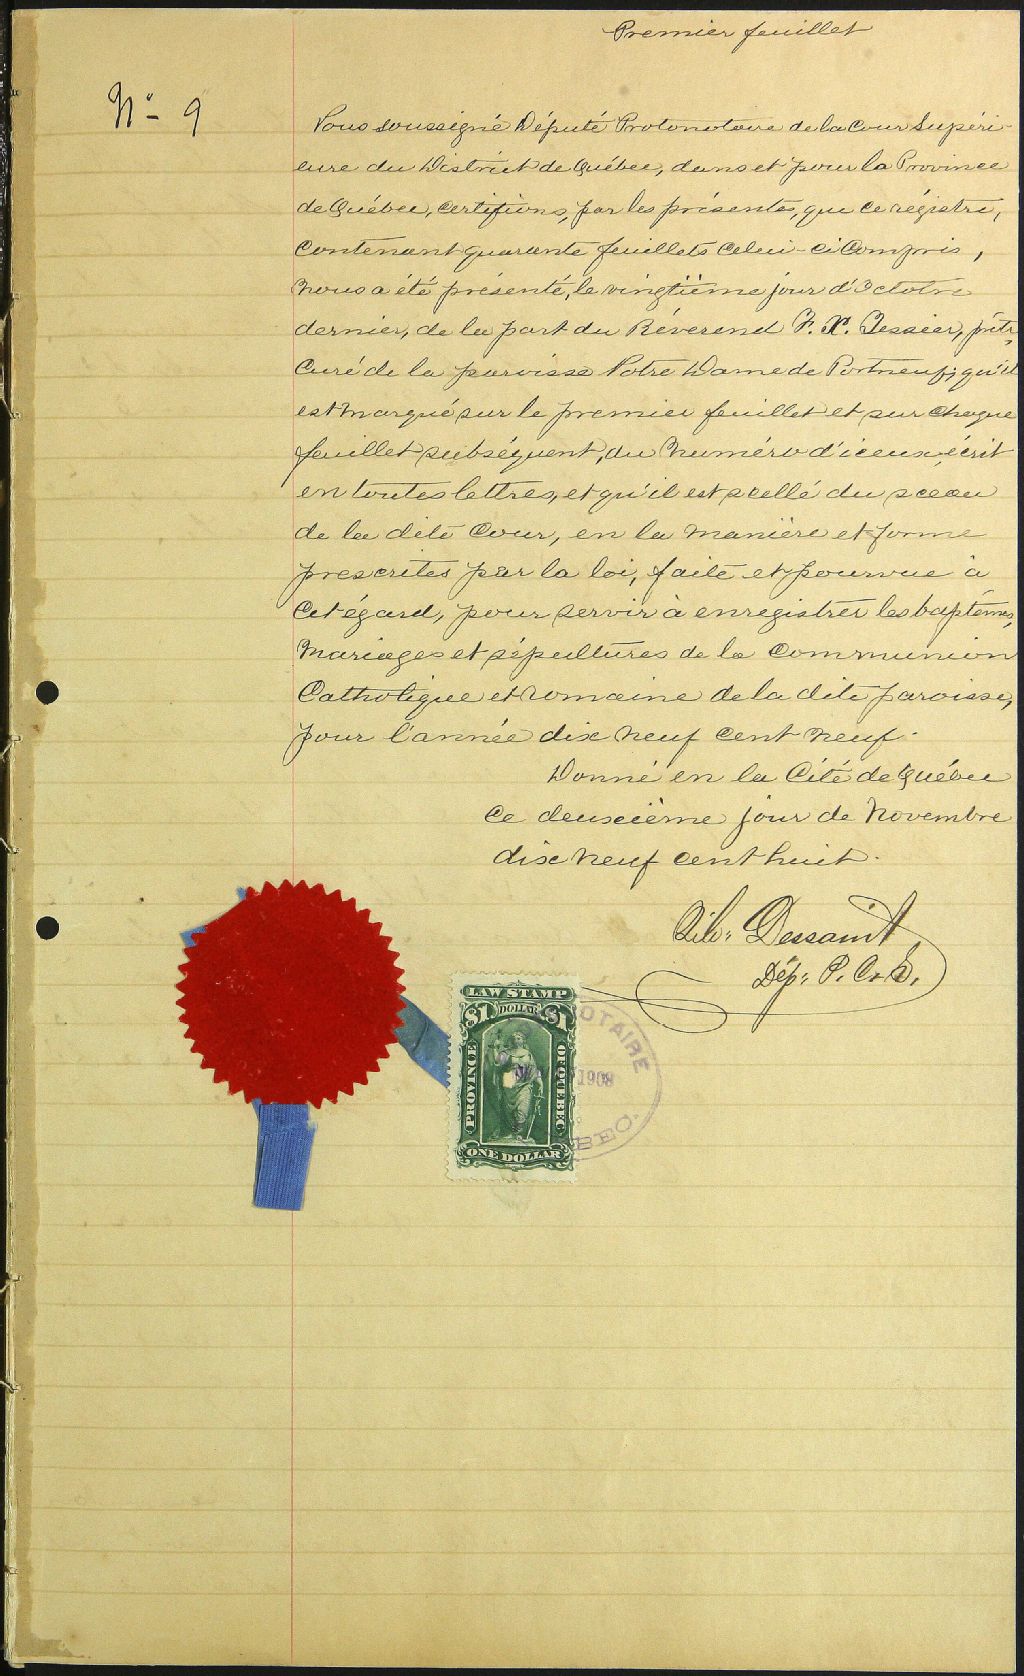 Premier feuillet
No 9
Nous soussigné Député Protonotaire de la Cour Supéri-
eure du District de Québec, dans et pour la Province
de Québec, certifions, par les présentes, que ce régistre,
contenant quarante feuillets celui-ci compris,
nous a été présenté, le vingtième jour d'Octobre
dernier, de la part du Révérend F. X. Tessier, ptre,
Curé de la paroisse Notre Dame de Portneuf; qu'il
est marqué sur le premier feuillet et sur chaque
feuillet subséquent, du numéro d'iceux, écrit
en toutes lettres, et qu'il est scellé du sceau
de la dite Cour, en la manière et forme
prescrites par la loi, faite et pourvue à
cet égard, pour servir à enregistrer les baptêmes,
mariages et sépultures de la Communion
Catholique et romaine de la dite paroisse,
pour l'année dix neuf cent neuf.
Donné en la Cité de Québec
ce deuxième jour de Novembre
dix neuf cent huit.
Dessaint
Dép: P. C. S.
LAW STAMP
$1 DOLLAR $1
PROVINCE OF QUEBEC
ONE DOLLAR
OTAIRE
1908
BEC.